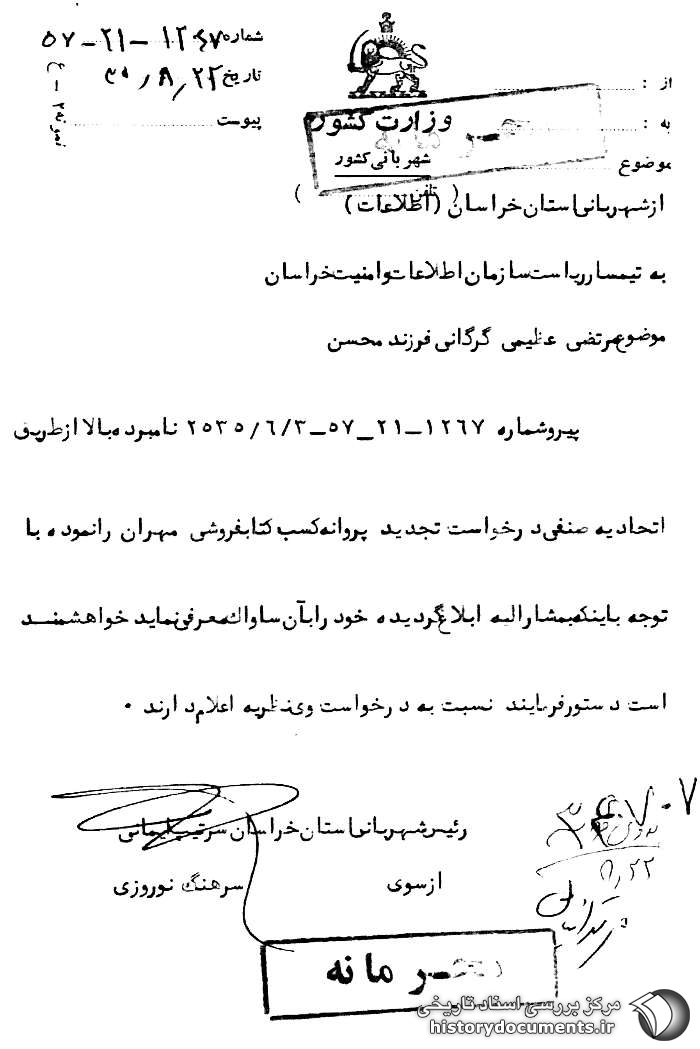 شماره ۱۲۶۷-۲۱-۵۷
تاریخ ۳۵/۸/۲۲
پیوست
نمونه ۲-ع
وزارت کشور
شهربانی کشور
(تلفن)
از :
به :
موضوع
محرمانه
از شهربانی استان خراسان (اطلاعات)
به تیمسار ریاست سازمان اطلاعات و امنیت خراسان
موضوع مرتضی عظیمی گرگانی فرزند محسن
پیرو شماره ۱۲۶۷-۲۱-۵۷-۲۵۳۵/۶/۳ نامبرده بالا از طریق
اتحادیه صنفی درخواست تجدید پروانه کسب کتابفروشی مهران را نموده با
توجه باینکه بمشارالیه ابلاغ گردیده خود را بآن ساواک معرفی نماید خواهشمند
است دستور فرمایند نسبت به درخواست وی نظریه اعلام دارند .
رئیس شهربانی استان خراسان سرتیپ ایمانی
از سوی سرهنگ نوروزی
۸/۲۲
محرمانه
مرکز بررسی اسناد تاریخی
historydocuments.ir